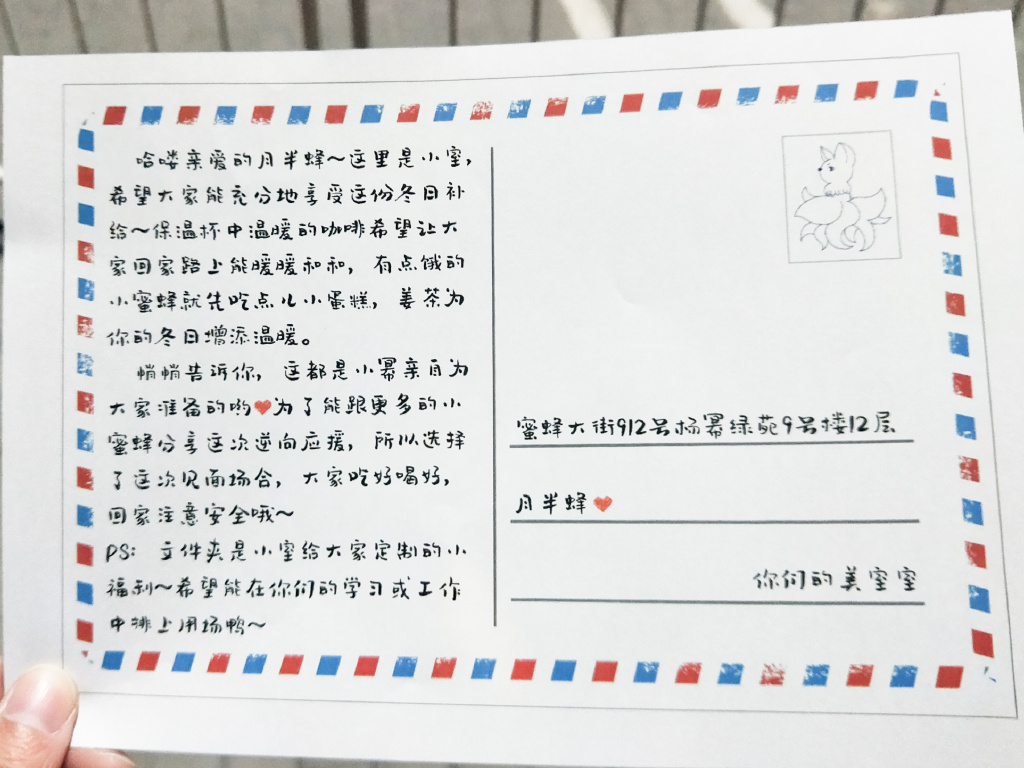 哈喽亲爱的月半蜂~这里是小室,
希望大家能充分地享受这份冬日补
给~保温杯中温暖的咖啡希望让大
家回家路上能暖暖和和,有点饿的
小蜜蜂就先吃点儿小蛋糕,姜茶为
你的冬日增添温暖。
悄悄告诉你,这都是小幂亲自为
大家准备的哟❤为了能跟更多的小
蜜蜂分享这次逆向应援,所以选择
了这次见面场合,大家吃好喝好,
回家注意安全哦~
PS: 文件夹是小室给大家定制的小
福利~希望能在你们的学习或工作
中排上用场鸭~
蜜蜂大街912号杨幂绿苑9号楼12层
月半蜂❤
你们的美室室